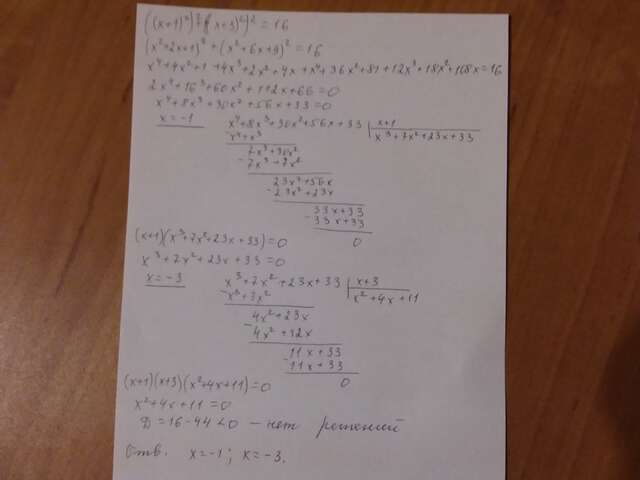 ((x+1)²)²+((x+3)²)²=16
(x²+2x+1)²+(x²+6x+9)²=16
x⁴+4x²+1+4x³+2x²+4x+x⁴+36x²+81+12x³+18x²+108x=16
2x⁴+16³+60x²+112x+66=0
x⁴+8x³+30x²+56x+33=0
x=-1
x⁴+8x³+30x²+56x+33 | x+1
- x⁴+x³ x³+7x²+23x+33
7x³+30x²
- 7x³+7x²
23x²+56x
- 23x²+23x
33x+33
- 33x+33
0
(x+1)(x³+7x²+23x+33)=0
x³+7x²+23x+33=0
x=-3
x³+7x²+23x+33 | x+3
- x³+3x² x²+4x+11
4x²+23x
- 4x²+12x
11x+33
- 11x+33
0
(x+1)(x+3)(x²+4x+11)=0
x²+4x+11=0
D=16-44<0 - нет решений
Отв. x=-1; x=-3.